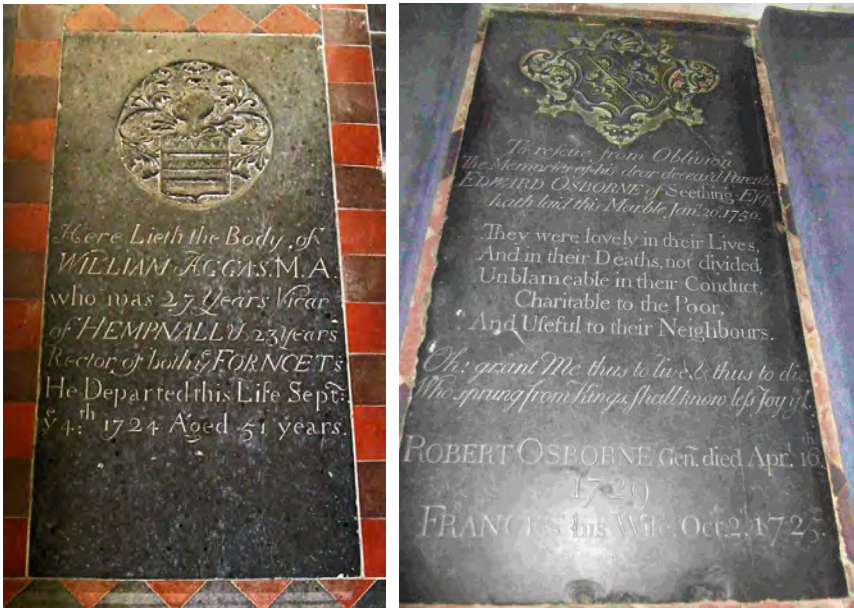 Here Lieth the Body of
WILLIAM AGGAS, M.A.
who was 27 Years Vicar
of HEMPNALL & 23 years
Rector of both yᵉ FORNCETs
He Departed this Life Septʳ:
yᵉ 4:ᵗʰ 1724 Aged 51 years.
To rescue from Oblivion
The Memories of his dear deceas'd Parents
EDWARD OSBORNE of Seething, Esqʳ
hath laid this Marble Jan. 20, 1750.
They were lovely in their Lives,
And in their Deaths, not divided,
Unblameable in their Conduct,
Charitable to the Poor,
And Useful to their Neighbours.
Oh! grant Me thus to live & thus to die
Who sprung from Kings, shall know less Joy yⁿ I.
ROBERT OSBORNE Genᵗ. died Aprˡ. 16,ᵗʰ
1729
FRANCES his Wife, Octʳ. 2,ᵈ 1725.